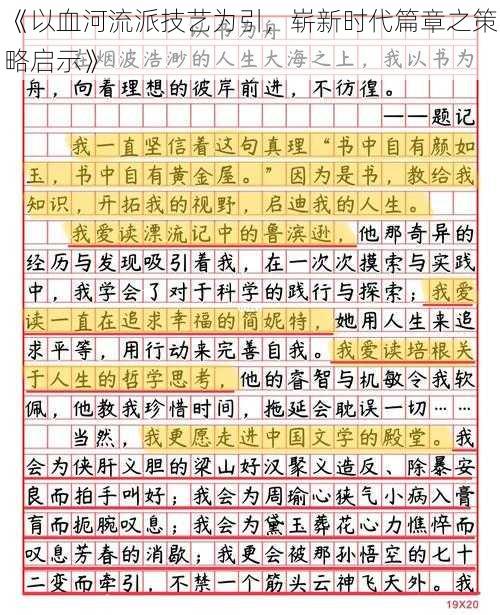 《以血河流派技艺为引，崭新时代篇章之策
略启示》
以书为舟
在烟波浩渺的人生大海之上，我以书为
舟，向着理想的彼岸前进，不彷徨。
——题记
我一直坚信着这句真理“书中自有颜如
玉，书中自有黄金屋。”因为是书，教给我
知识，开拓我的视野，启迪我的人生。
我爱读漂流记中的鲁滨逊，他那奇异的
经历与发现吸引着我，在一次次摸索与实践
中，我学会了对于科学的践行与探索；我爱
读一直在追求幸福的简妮特，她用人生来追
求平等，用行动来完善自我。我爱读培根关
于人生的哲学思考，他的睿智与机敏令我软
佩，他教我珍惜时间，拖延会耽误一切……
当然，我更愿走进中国文学的殿堂。我
会为侠肝义胆的梁山好汉聚义造反、除暴安
良而拍手叫好；我会为周瑜心狭气小病入膏
肓而扼腕叹息；我会为黛玉葬花心力憔悴而
叹息芳春的消歇；我更会被那孙悟空的七十
二变而牵引，不禁一个筋头云神飞天外。我
19X20